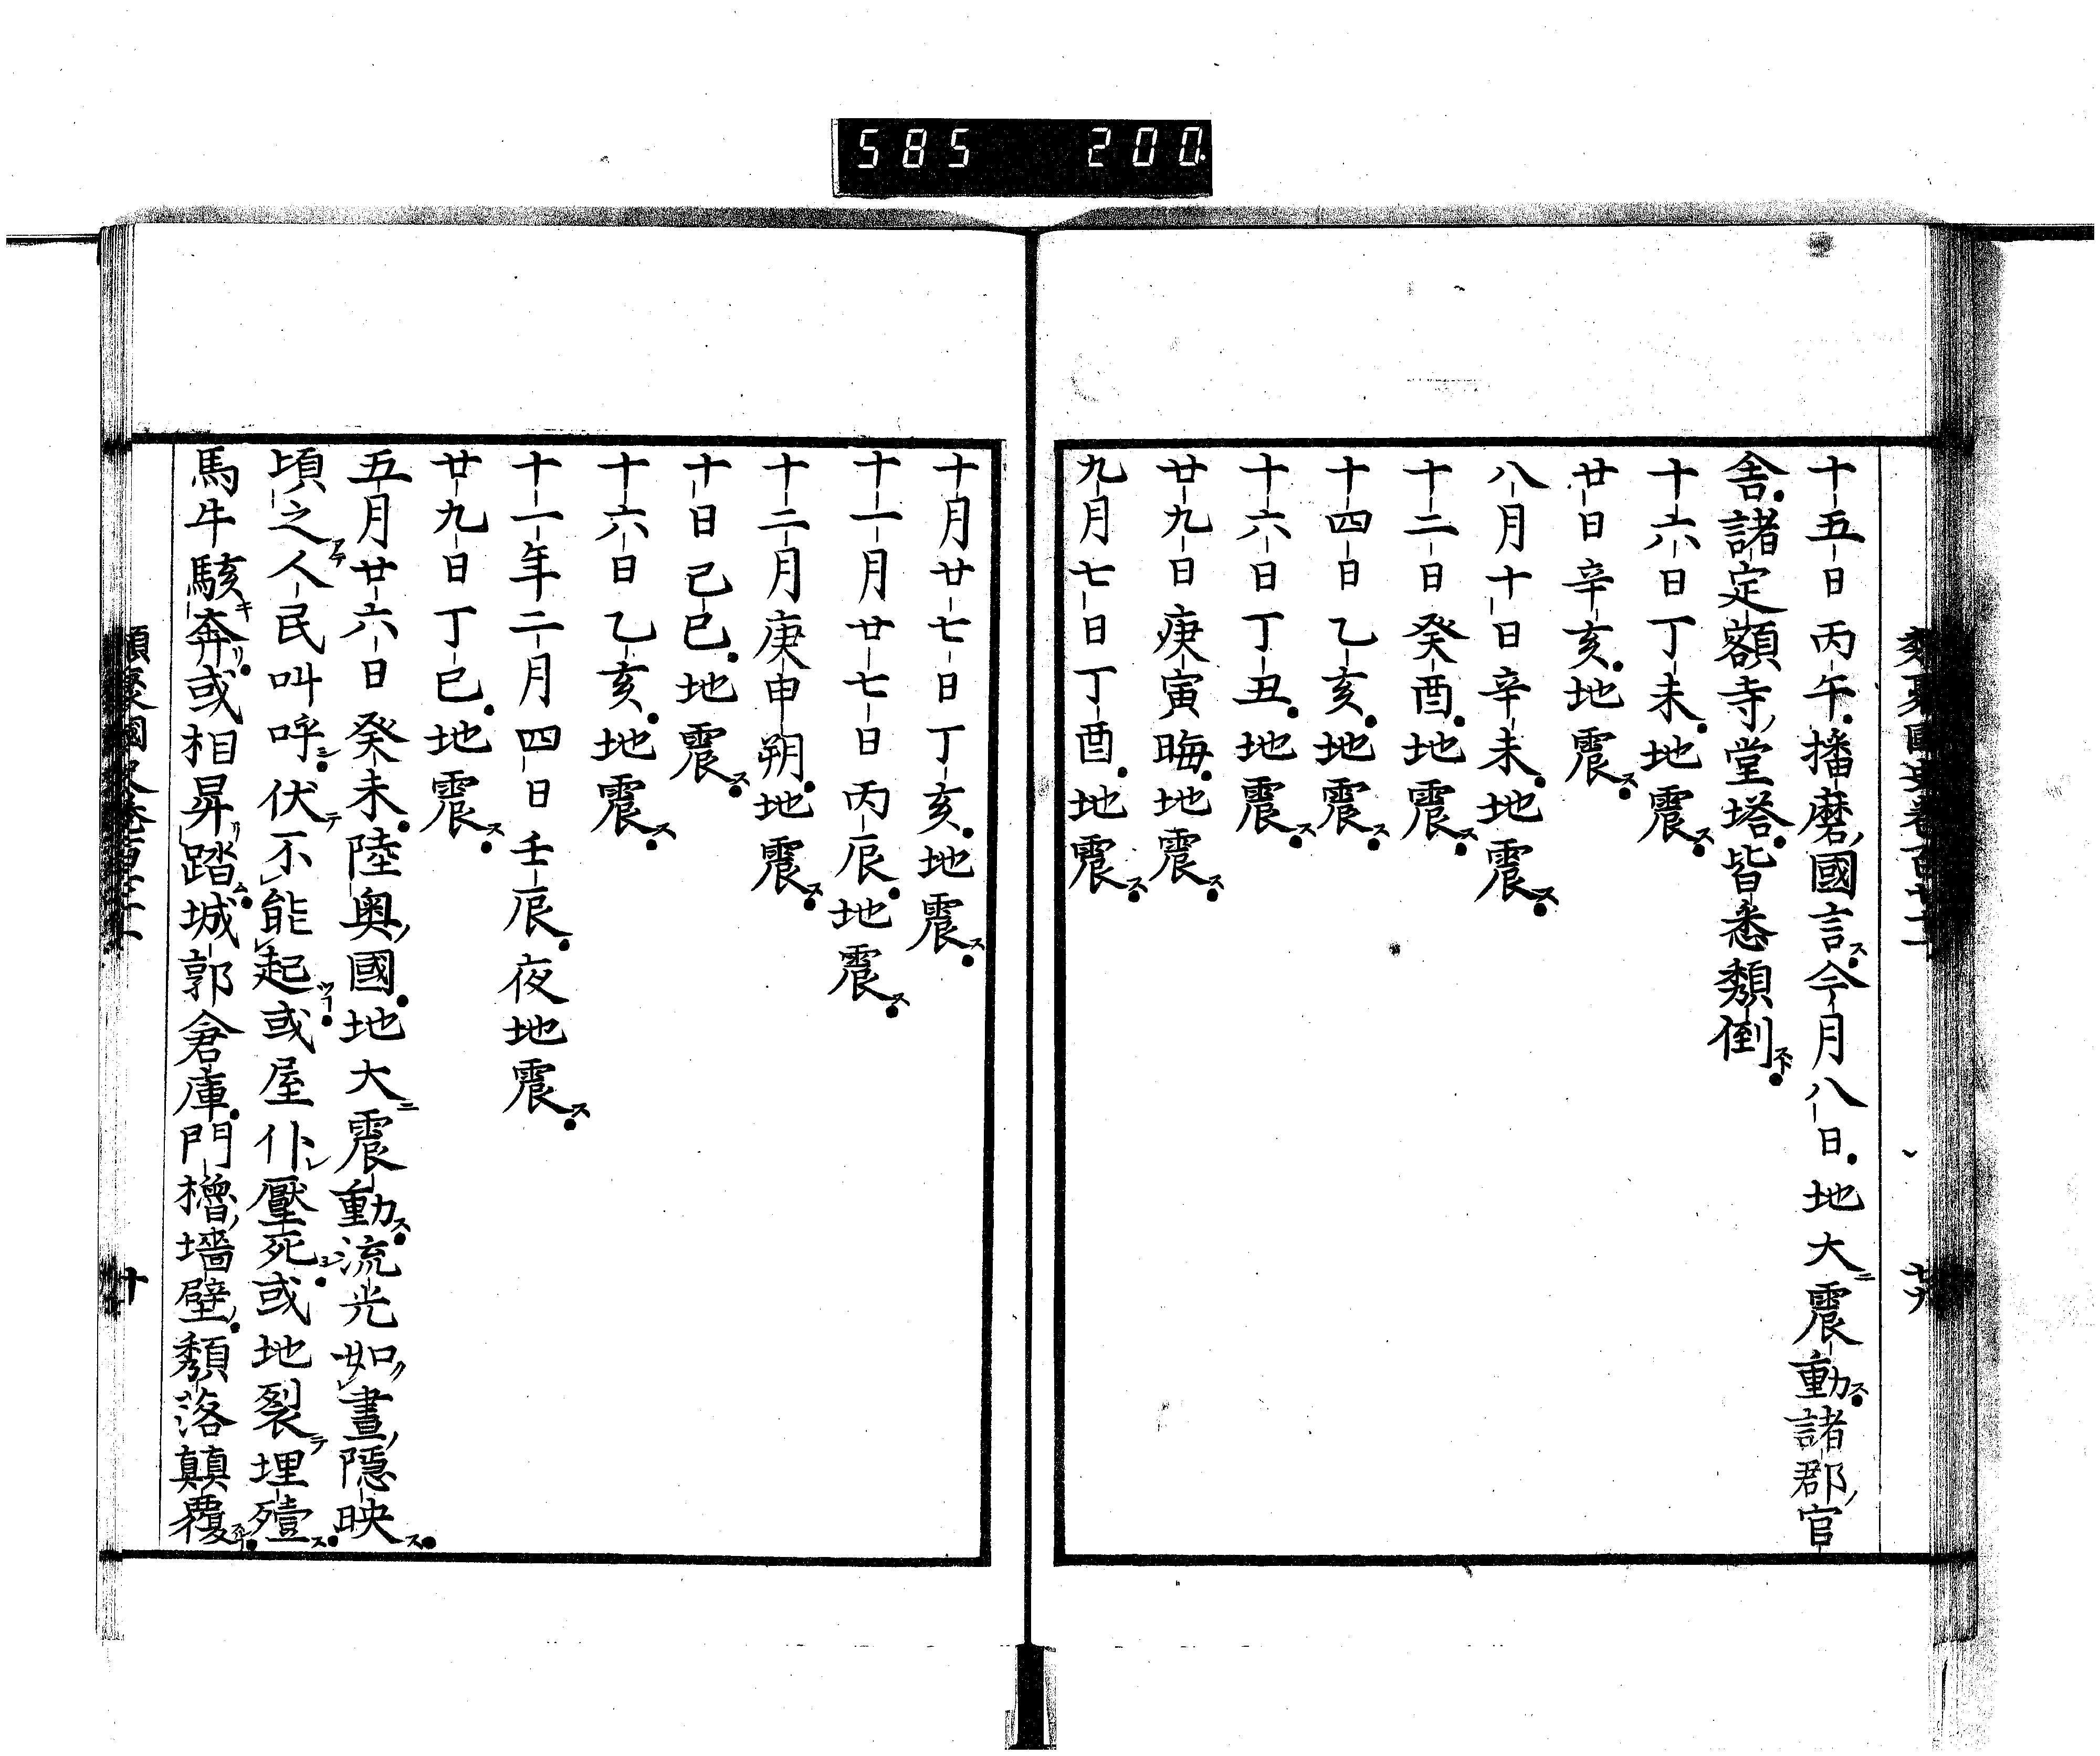 585 200
十五日丙午播磨國言ス今月八日地大ニ震動ス諸郡ノ官
舎諸定額寺ノ堂塔皆悉頽倒
十六日丁未地震ス
廿日辛亥地震ス
八月十日辛未地震ス
十二日癸酉地震ス
十四日乙亥地震ス
十六日丁丑地震ス
廿九日庚寅晦地震ス
九月七日丁酉地震ス
十月廿七日丁亥地震ス
十一月廿七日丙辰地震ス
十二月庚申朔地震ス
十日己巳地震ス
十六日乙亥地震ス
十一年二月四日壬辰夜地震ス
廿九日丁巳地震ス
五月廿六日癸未陸奥ノ國地大ニ震動ス流光如リレ晝ノ隱映ス
頃之アテ人民叫呼シ伏テ不レ能レ起ツヿ或屋仆レ壓死シ或地裂テ埋殪ス
馬牛駭キ奔リ或相昇リ踏ム城郭倉庫門櫓ノ墻壁ノ頽落顛覆